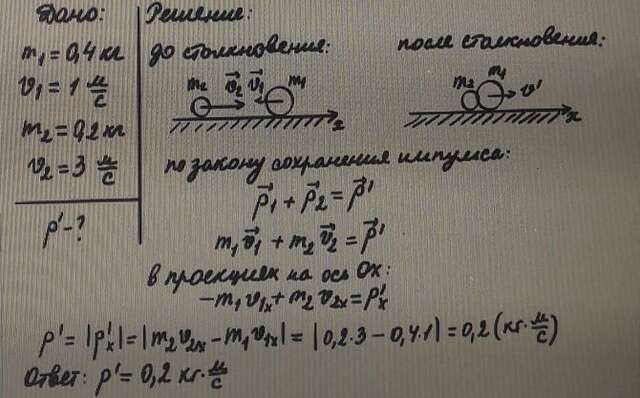 Дано:
m₁ = 0,4 кг
v₁ = 1 м/с
m₂ = 0,2 кг
v₂ = 3 м/с
p' - ?
Решение:
до столкновения:
m₂ v⃗₂ v⃗₁ m₁
x
после столкновения:
m₂ m₁ v'
x
по закону сохранения импульса:
p⃗₁ + p⃗₂ = p⃗'
m₁v⃗₁ + m₂v⃗₂ = p⃗'
в проекциях на ось Ox:
-m₁v₁ₓ + m₂v₂ₓ = p'ₓ
p' = |p'ₓ| = |m₂v₂ₓ - m₁v₁ₓ| = |0,2·3 - 0,4·1| = 0,2 (кг·м/с)
Ответ: p' = 0,2 кг·м/с